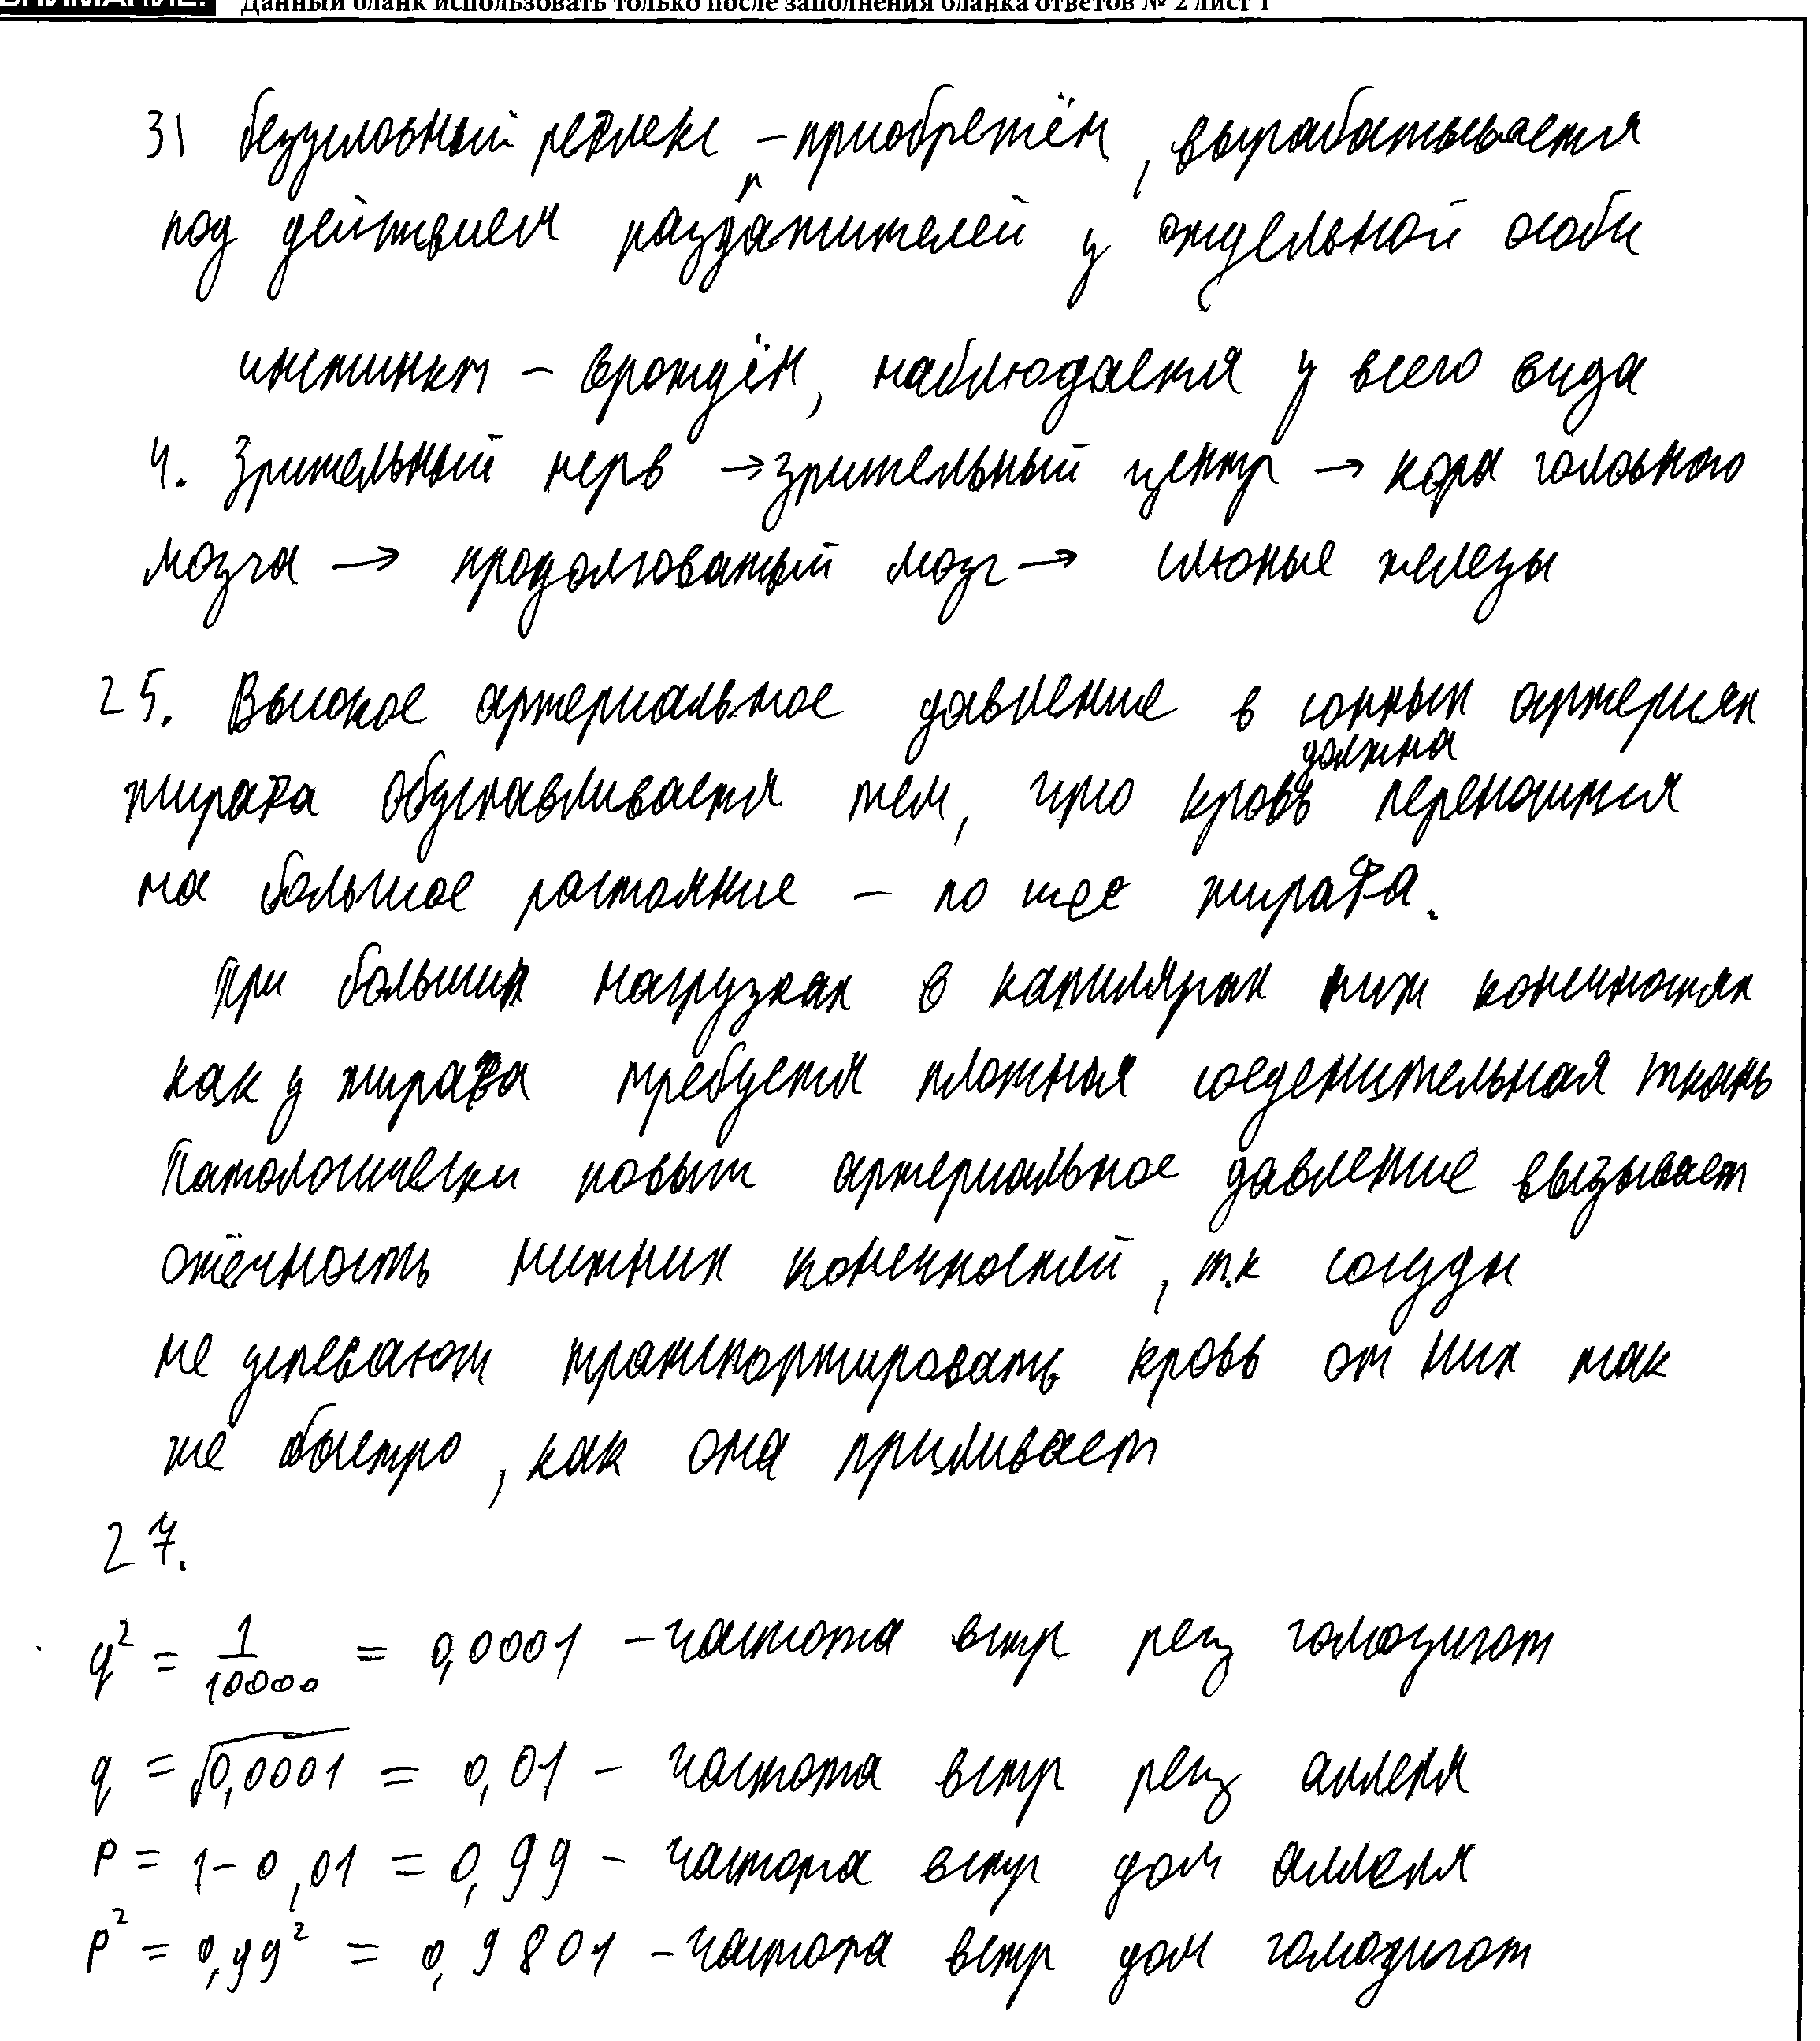 ВНИМАНИЕ! Данный бланк использовать только после заполнения бланка ответов № 2 лист 1
3) безусловный рефлекс - приобретён, вырабатывается
под действием раздражителей у отдельной особи
инстинкт - врождён, наблюдается у всего вида
4. Зрительный нерв → зрительный центр → кора головного
мозга → продолговатый мозг → слюные железы
25. Высокое артериальное давление в сонных артериях
жирафа обуславливается тем, что кровь должна переносится
на большое растояние - по шее жирафа.
При больших нагрузках в капилярах ниж конечностях
как у жирафа требуется плотная соеденительная ткань
Патологически повыш артериальное давление вызывает
отёчность нижних конечностей, т.к сосуды
не успевают транспортировать кровь от них так
же быстро, как она приливает
27.
q² = 1/10000 = 0,0001 - частота встр рец гомозигот
q = √0,0001 = 0,01 - частота встр рец аллеля
p = 1-0,01 = 0,99 - частота встр дом аллеля
p² = 0,99² = 0,9801 - частота встр дом гомозигот